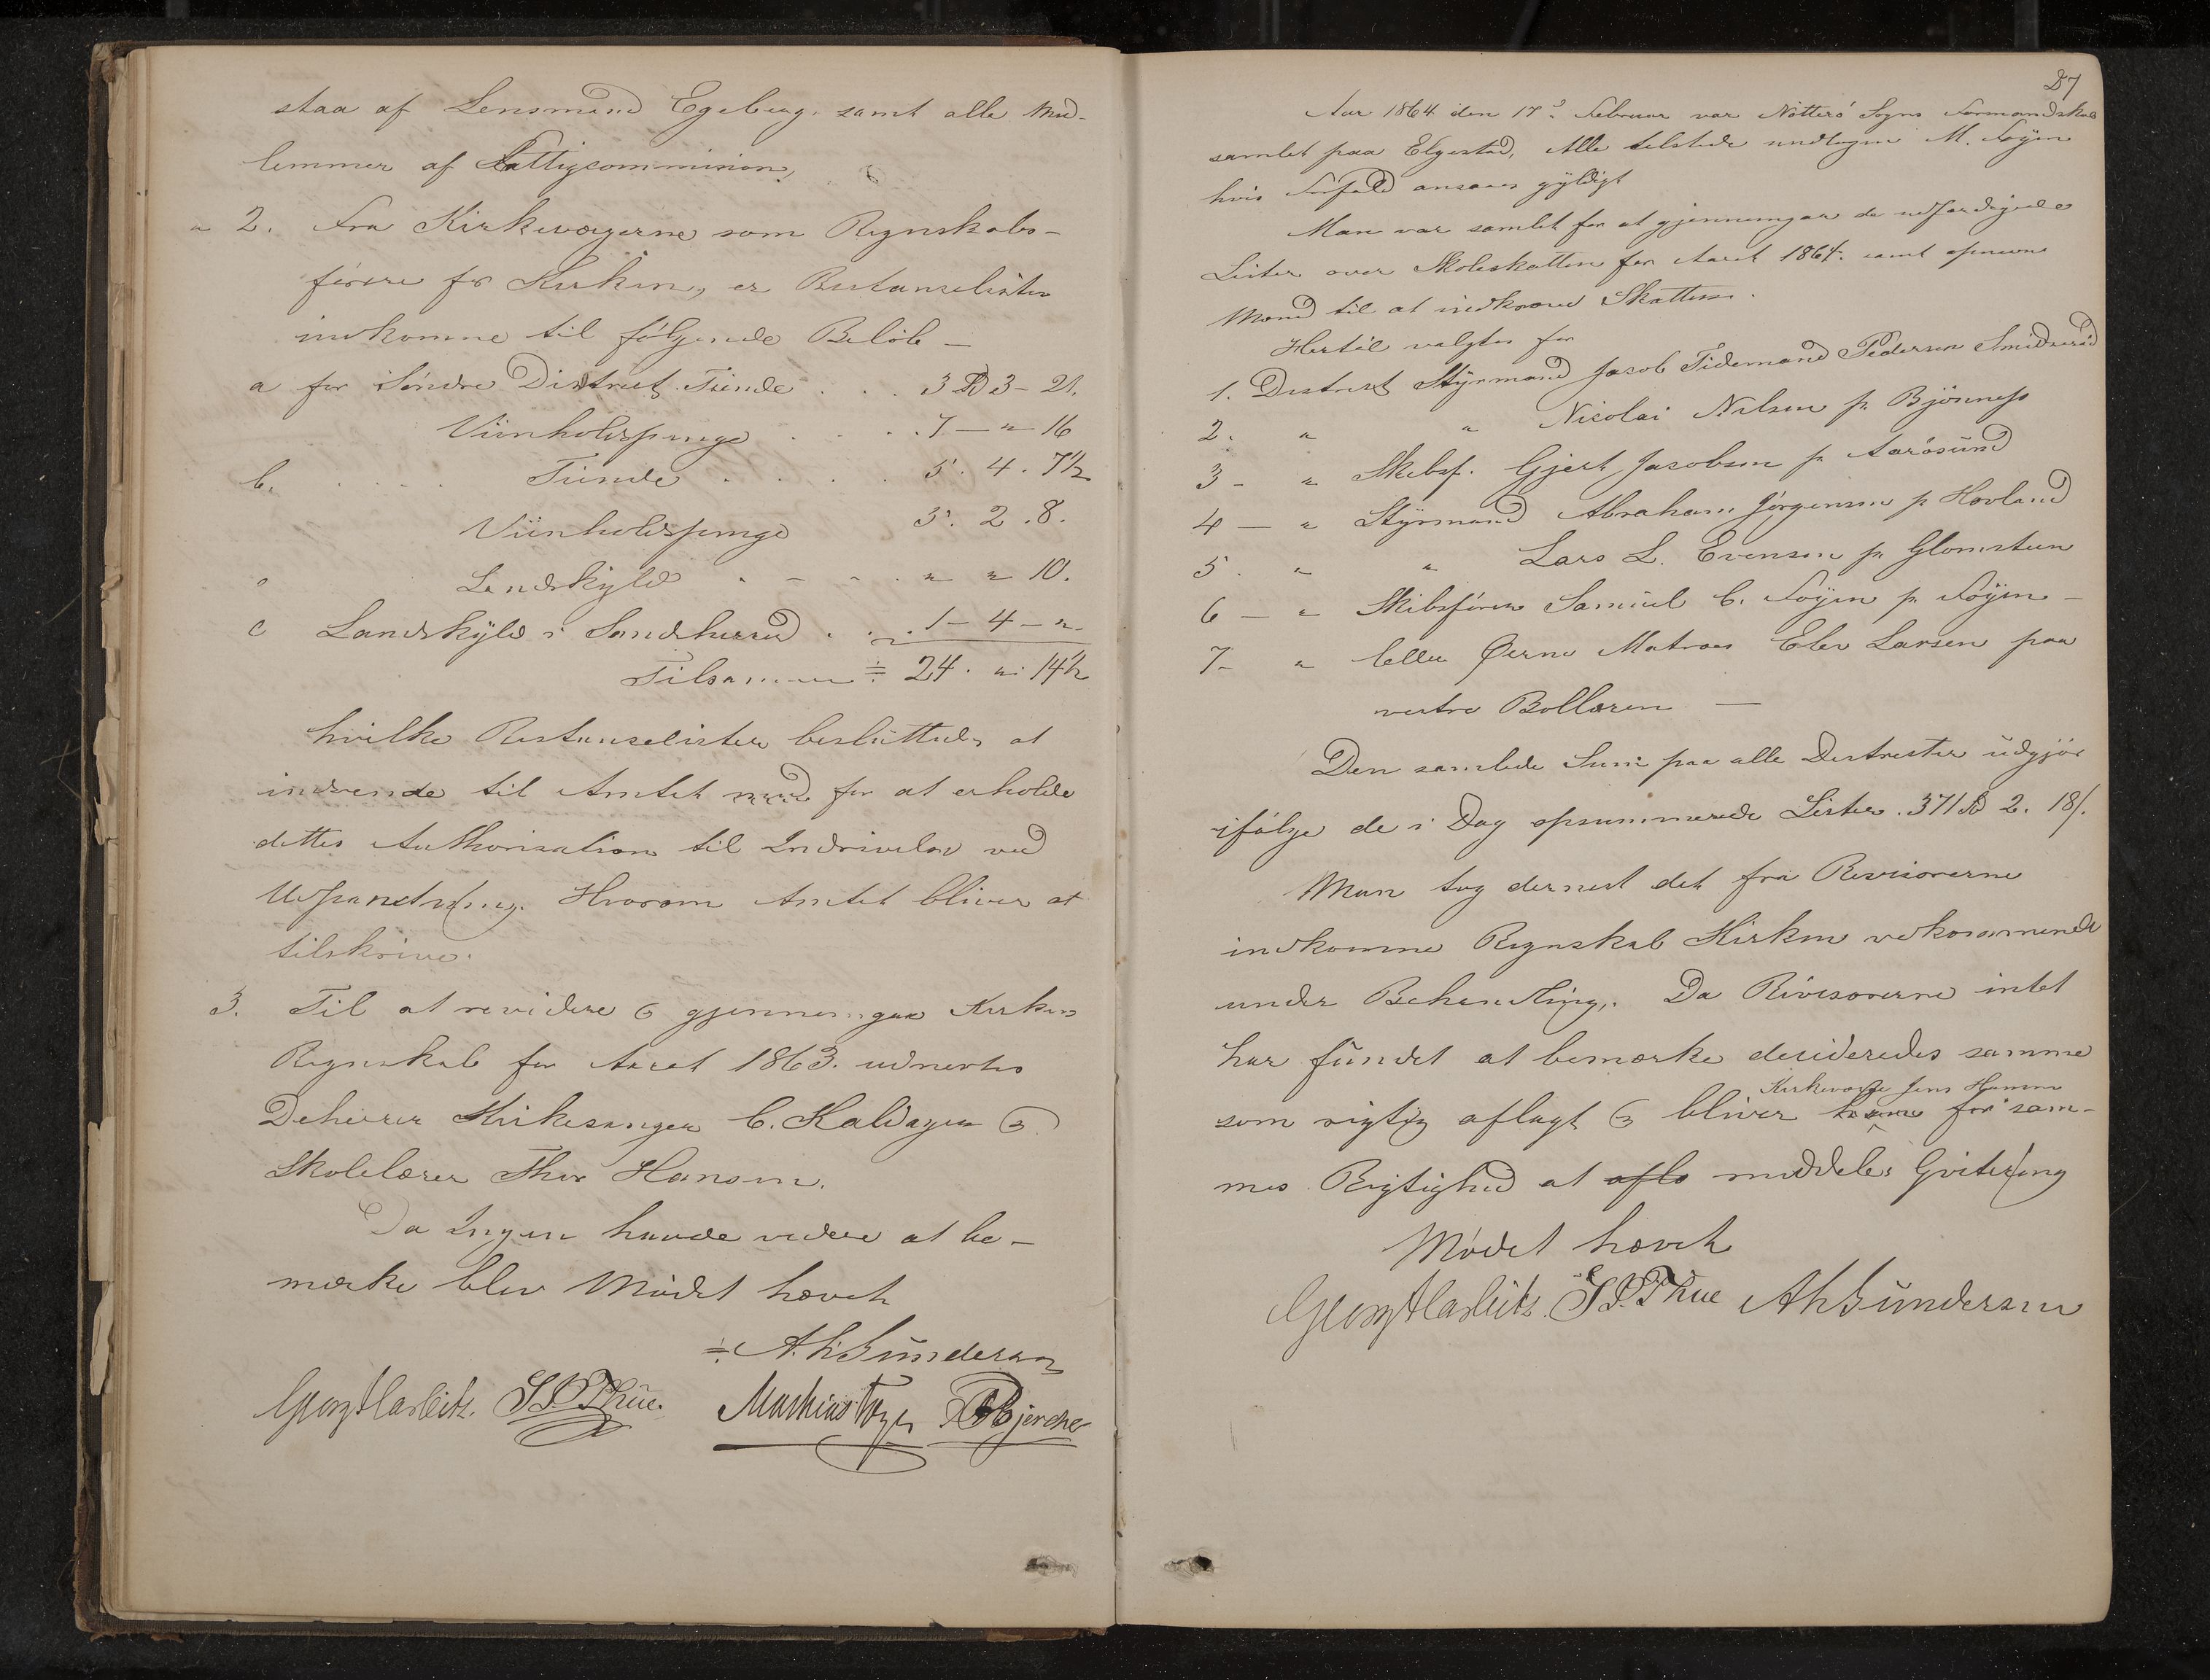 staa af Lensmand Egeberg. samt alle Med-
lemmer af Fattigcommision,
" 2. Fra Kirkeværgerne som Regnskabs-
förere for Kirken, er Restanselister
indkomne til følgende Belöb –
a for Söndre District Tiende . . . 3 Spd 3 – 21.
Viinholdspenge . . . . 7 – " 16
b. . . . . Tiende . . . . 5. 4. 7½
Viinholdspenge 5. 2. 8.
Landskyld . – . . " " 10.
c Landskyld i Sandherred . . 1 – 4 – "
Tilsammen ÷ 24. " 14½
hvilke Restanselister besluttedes at
indsende til Amtet for at erholde
dettes Authorisation til Inddrivelse ved
Udpantning. Hvorom Amtet bliver at
tilskrive.
3. Til at revidere & gjennemgaa Kirkens
Regnskab for Aaret 1863. udnevtes
Deherrer Kirkesanger C. Kaldager &
Skolelærer Thor Hansen.
Da Ingen havde videre at be-
mærke blev Mödet hævet
÷ A. h Gundersen
Georg Harbitz. S. P. Thue. Mathias Föyen Bjerche
27
Aar 1864 den 17d Februar var Nötterö Sogns Formandskab
samlet paa Elgestad, Alle tilstede undtagen M. Föyen
hvis Forfald ansaaes gyldigt
Man var samlet for at gjennemgaa de udfærdigede
Lister over Skoleskatten for Aaret 1864. samt opnevne
Mænd til at indkræve Skatten.
Hertil valgtes for
1. District Styrmand Jacob Tidemand Pedersen Smidsröd
2. " " Nicolai Nilsen p. Bjönnes
3 – " Skibsf. Gjert Jacobsen p. Aarösund
4 – " Styrmand Abraham Jörgensen p. Hovland
5. " " Lars L. Evensen p. Glomsteen
6 – " Skibsförer Samuel C. Föyen p. Föyen –
7 – " eller Öerne Matros Elev Larsen paa
vestre Bollæren –
Den samlede Sum paa alle Districter udgjör
ifölge de i Dag opsummerede Lister. 371 Spd 2. 18/.
Man tog dernest det fra Revisorerne
indkomne Regnskab Kirken vedkommende
under Behandling,. Da Revisorerne intet
har fundet at bemærke desideredes samme
Kirkeværge Jens Hansen
som rigtig aflagt & bliver for sam-
mes Rigtighed at aflo meddeles Qvitering
Mödet hævet
Georg Harbitz. S. P. Thue A h Gundersen